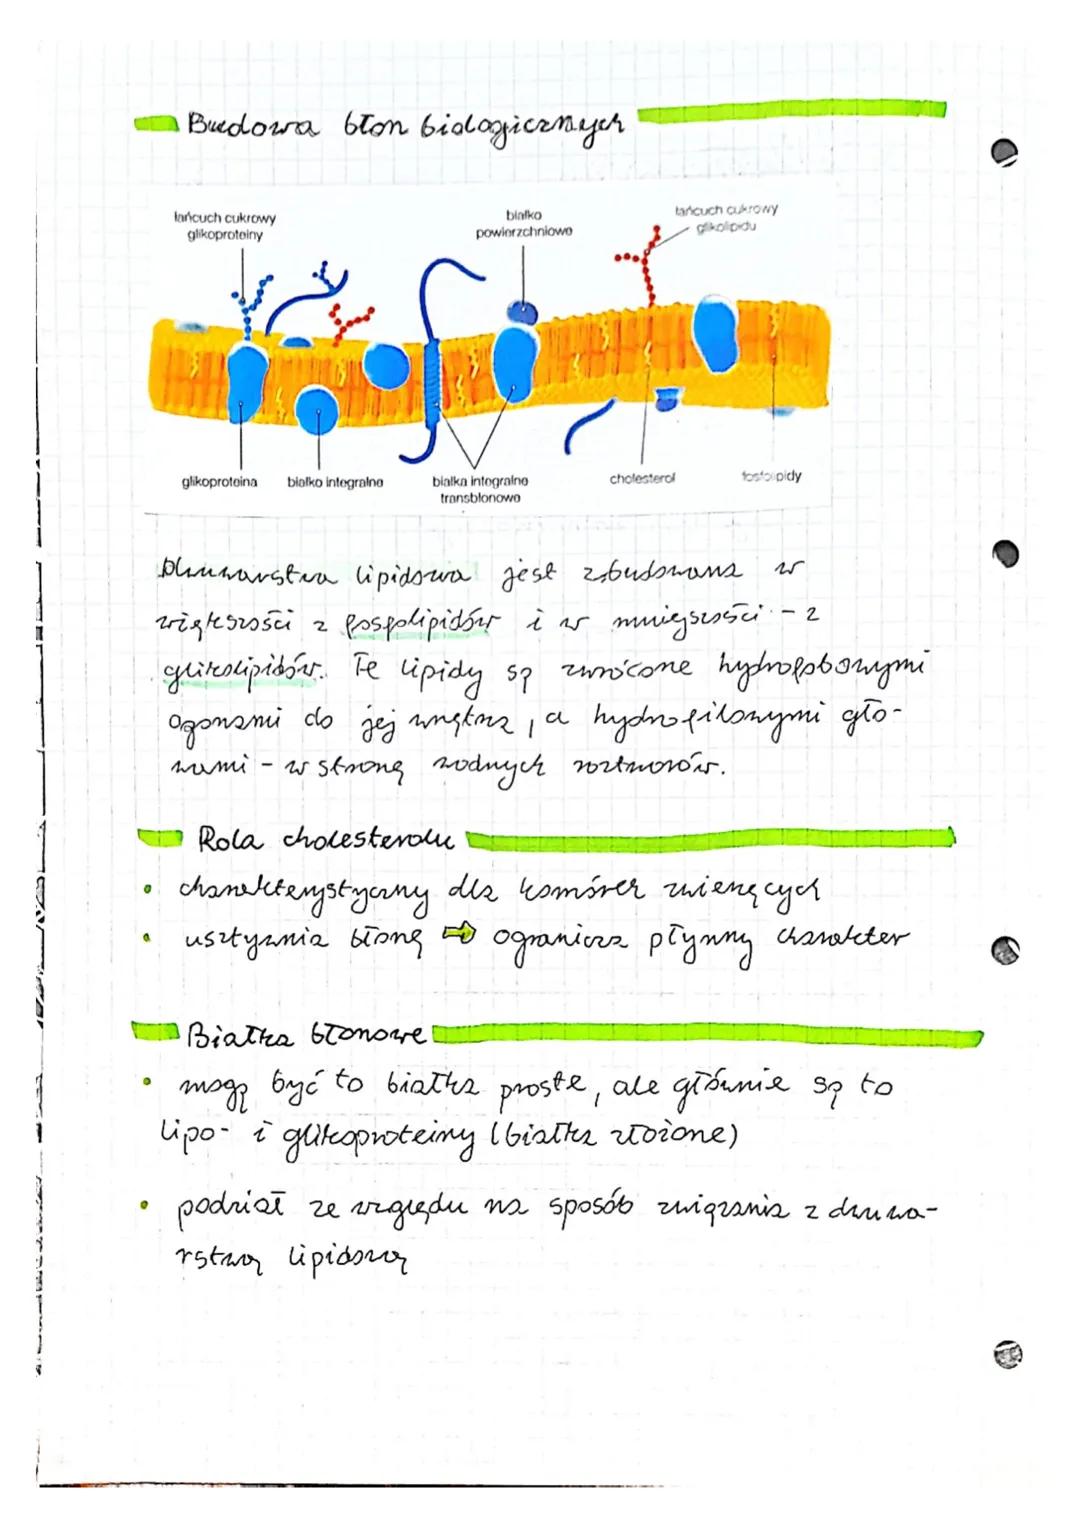 Budowa błon biologicznych
łańcuch cukrowy
glikoproteiny
białko
powierzchniowe
łańcuch cukrowy
glikolipidu
glikoproteina
białko integralne
białka integralne
transbłonowe
cholesterol
fosfolipidy
Dwuwarstwa lipidowa jest zbudowana w
większości z fosfolipidów i w mniejszości - z
glikolipidów. Te lipidy są zwrócone hydrofobowymi
ogonami do jej wnętrza, a hydrofilowymi gło-
wami - w stronę wodnych roztworów.
Rola cholesterolu
• charakterystyczny dla komórek zwierzęcych
• usztywnia błonę ⇒ ogranicza płynny charakter
Białka błonowe
• mogą być to białka proste, ale głównie są to
lipo- i glikoproteiny (białka złożone)
• podział ze względu na sposób związania z dwuwa-
rstwą lipidową